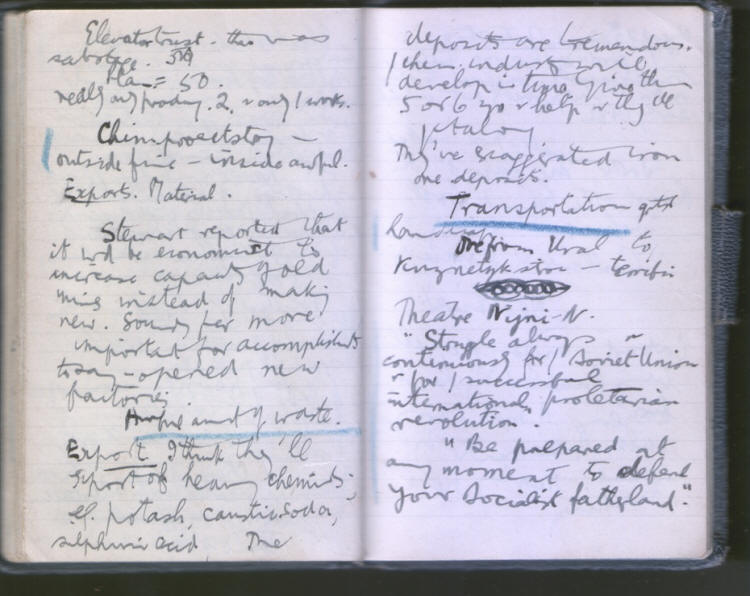 Elevator trust - this was
sabotage.
Plan = 50.
really only produg. 2, & only 1 works.
Chimprovectstroy -
outside fine - inside awful.
Exports. Material.
Stewart reported that
it wd be economic to
increase capacity of old
mines instead of making
new. Sounds far more
important for accomplishmts
to say - opened new
factories.
Awful amt of waste.
Export. I think they'll
export of heavy chemicals;
eg. potash, caustic soda,
sulphuric acid. The
deposits are tremendous.
/ chem. industry will
develop in time. Give them
5 or 6 yrs & help & they'll

They've exaggerated iron
ore deposits.
Transportation gtst
handicap
Ore from Ural to
Kuznetzkstroi - terrific
Theatre Nijni-N.
"Struggle always &
continuously for / Soviet Union
& for / successful
international proletarian
revolution.
"Be prepared at
any moment to defend
your Socialist fatherland."